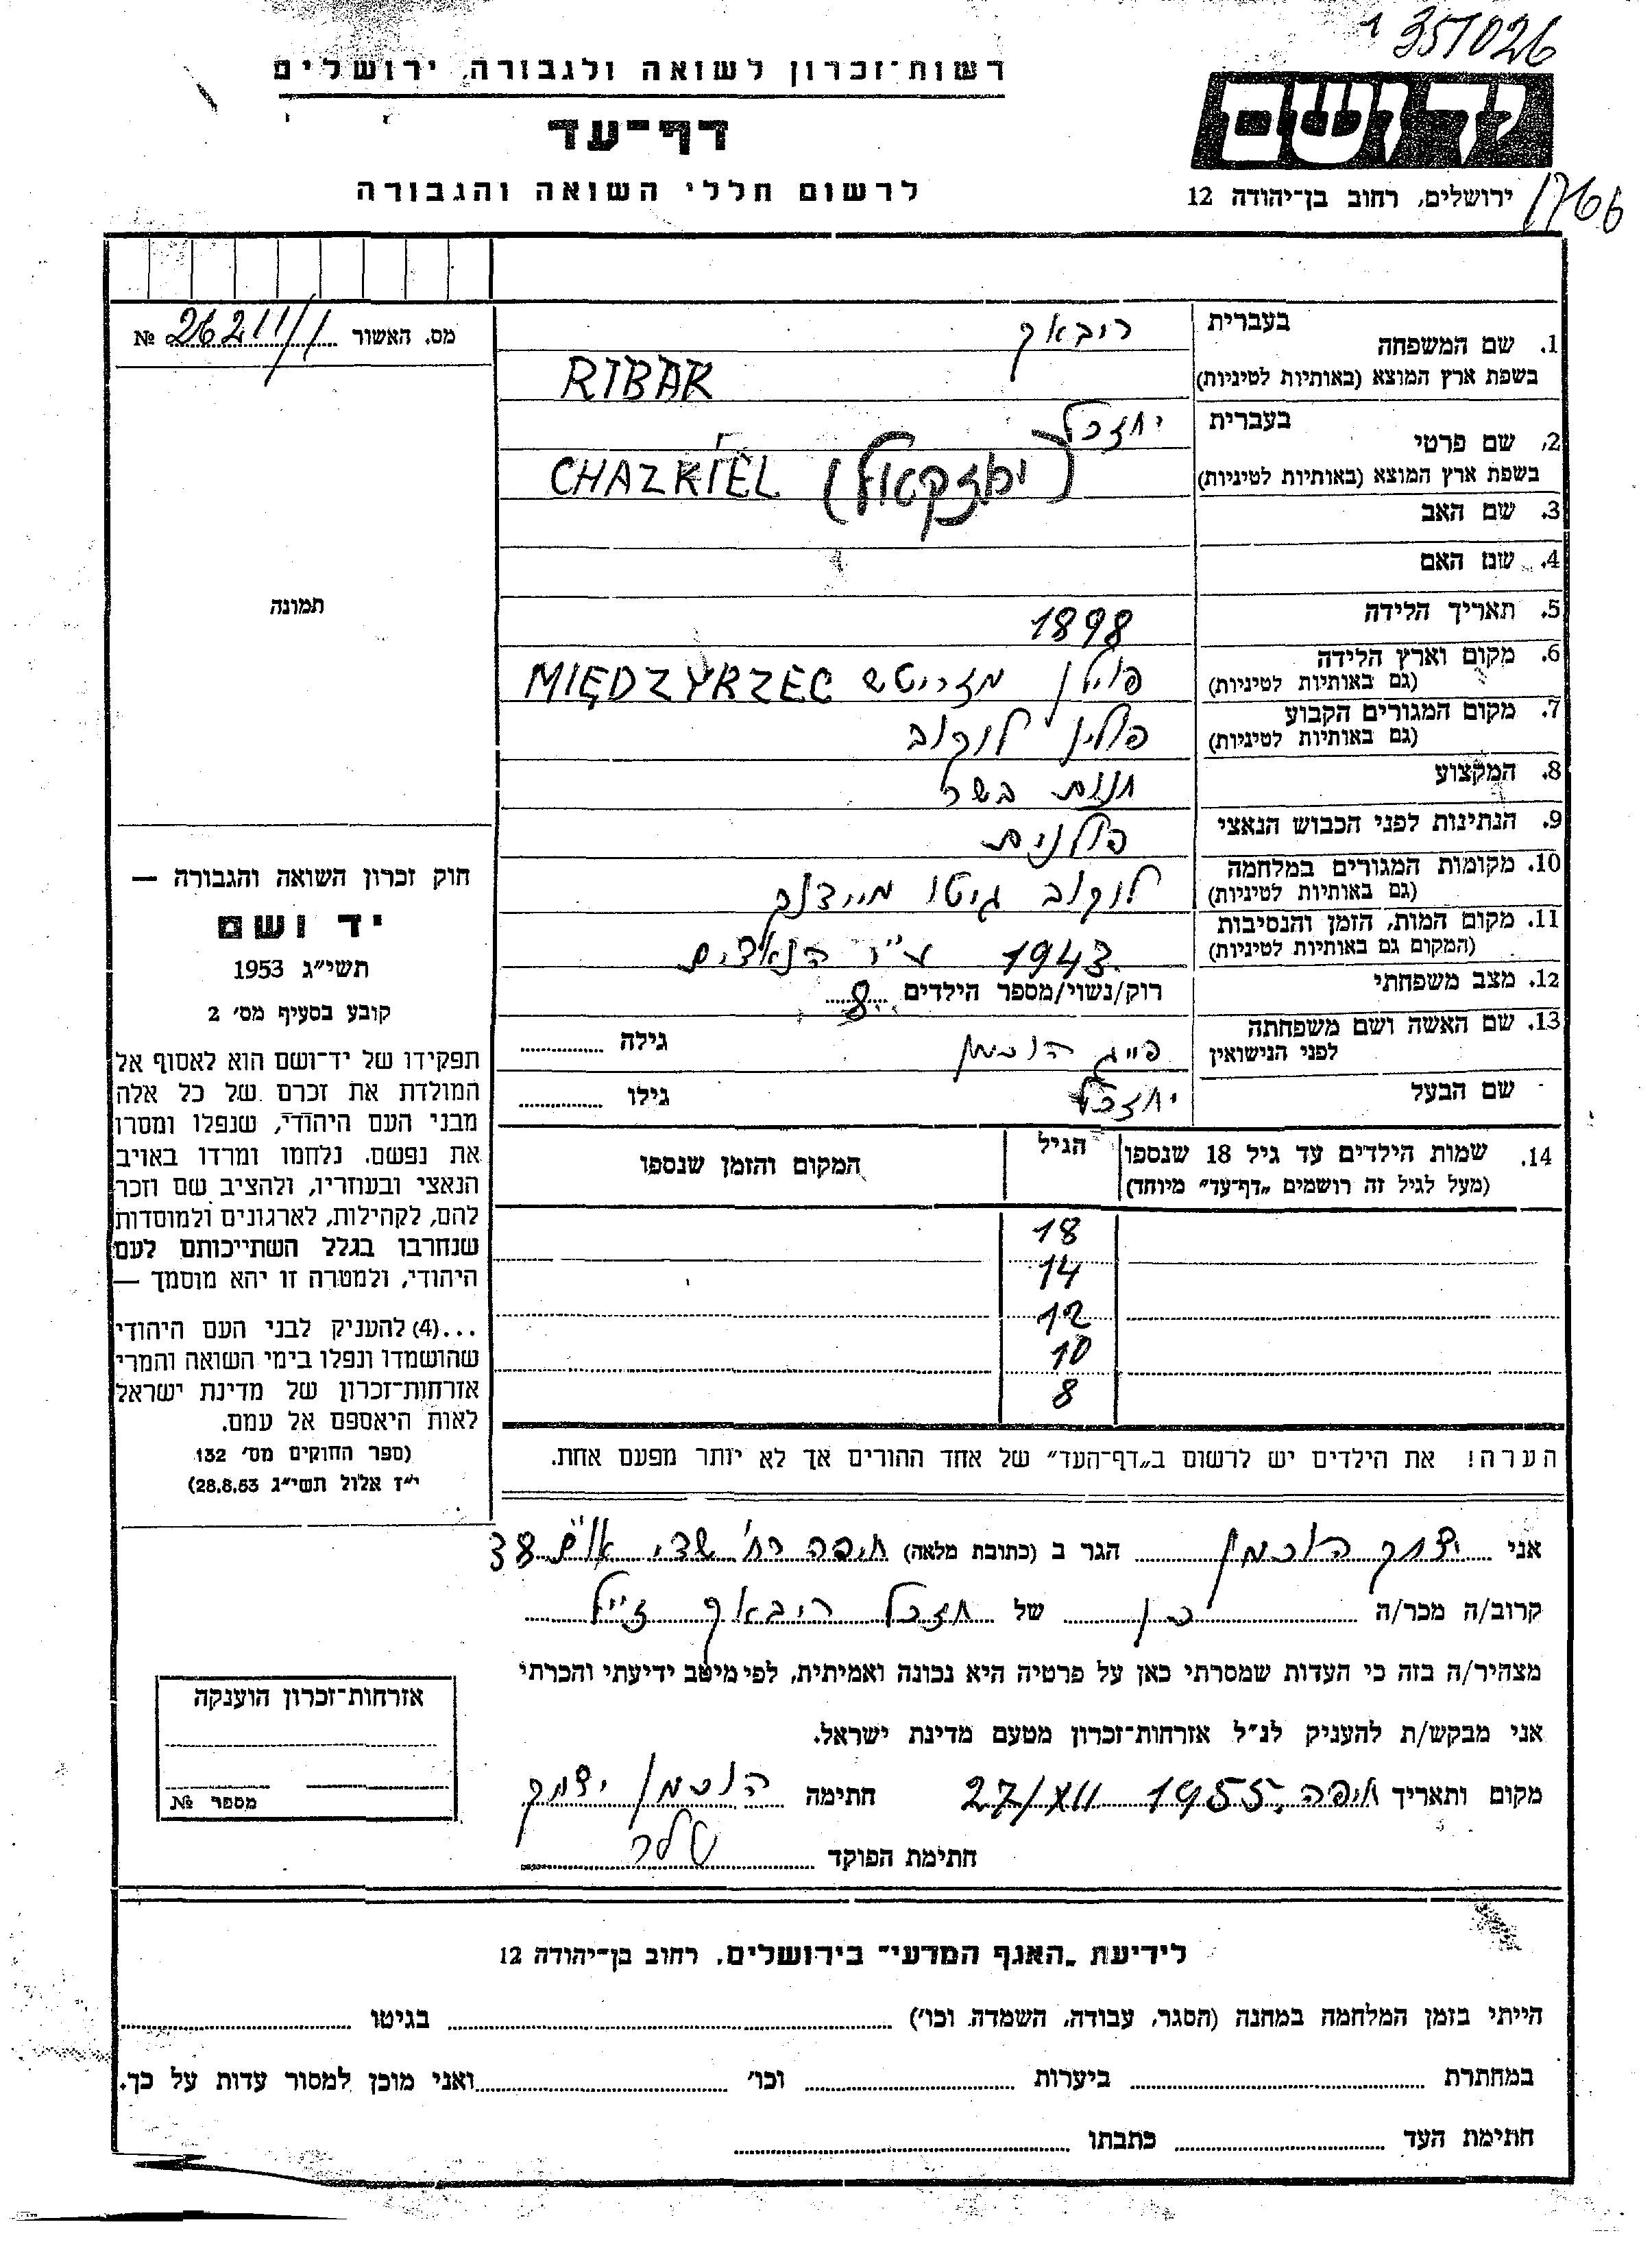 351026
רשות־זכרון לשואה ולגבורה, ירושלים
יד ושם
דף־עד
לרשום חללי השואה והגבורה
ירושלים, רחוב בן־יהודה 12
1766
מס. האשור 26211/1 №
1. שם המשפחה
בעברית ריבאק
בשפת ארץ המוצא (באותיות לטיניות) RIBAK
2. שם פרטי
בעברית יחזכל
בשפת ארץ המוצא (באותיות לטיניות) CHAZKIEL
3. שם האב
4. שם האם
תמונה
5. תאריך הלידה 1898
6. מקום וארץ הלידה
(גם באותיות לטיניות) פוילן מזריטש MIĘDZYRZEC
7. מקום המגורים הקבוע
(גם באותיות לטיניות) פולין לוקוב
8. המקצוע חנות בשר
9. הנתינות לפני הכבוש הנאצי פולנית
10. מקומות המגורים במלחמה
(גם באותיות לטיניות) לוקוב גיטו מיידנק
11. מקום המות, הזמן והנסיבות
(המקום גם באותיות לטיניות) 1943 ע״י הנאצים
12. מצב משפחתי רוק/נשוי/מספר הילדים 8
13. שם האשה ושם משפחתה
לפני הנישואין הוכמן גילה
שם הבעל יחזכל גילו
14. שמות הילדים עד גיל 18 שנספו
(מעל לגיל זה רושמים „דף־עד״ מיוחד)
הגיל
המקום והזמן שנספו
18
14
12
10
8
הערה! את הילדים יש לרשום ב„דף־העד״ של אחד ההורים אך לא יותר מפעם אחת.
חוק זכרון השואה והגבורה —
יד ושם
תשי״ג 1953
קובע בסעיף מס׳ 2
תפקידו של יד־ושם הוא לאסוף אל
המולדת את זכרם של כל אלה
מבני העם היהודי, שנפלו ומסרו
את נפשם. נלחמו ומרדו באויב
הנאצי ובעוזריו, ולהציב שם וזכר
להם, לקהילות, לארגונים ולמוסדות
שנחרבו בגלל השתייכותם לעם
היהודי, ולמטרה זו יהא מוסמך —
...(4) להעניק לבני העם היהודי
שהושמדו ונפלו בימי השואה והמרי
אזרחות־זכרון של מדינת ישראל
לאות היאספם אל עמם.
(ספר החוקים מס׳ 132
י״ז אלול תשי״ג 28.8.53)
אני יצחק הוכמן הגר ב (כתובת מלאה) חיפה רח׳ שדי 38
קרוב/ה מכר/ה של חזכל ריבאק ז״ל
מצהיר/ה בזה כי העדות שמסרתי כאן על פרטיה היא נכונה ואמיתית, לפי מיטב ידיעתי והכרתי
אני מבקש/ת להעניק לנ״ל אזרחות־זכרון מטעם מדינת ישראל.
מקום ותאריך חיפה 27/XII 1955 חתימה הוכמן יצחק
חתימת הפוקד
אזרחות־זכרון הוענקה
מספר №
לידיעת „האגף המדעי״ בירושלים, רחוב בן־יהודה 12
הייתי בזמן המלחמה במחנה (הסגר, עבודה, השמדה וכו׳) בגיטו
במחתרת ביערות וכו׳ ואני מוכן למסור עדות על כך.
חתימת העד כתבתו